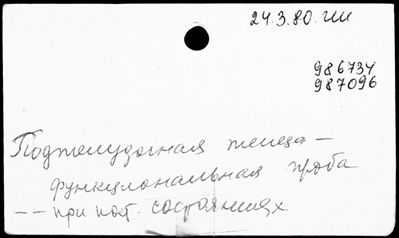 24.3.80. ГШ
986734
987096
Поджелудочная железа –
функциональная проба
– – при пат. состояниях